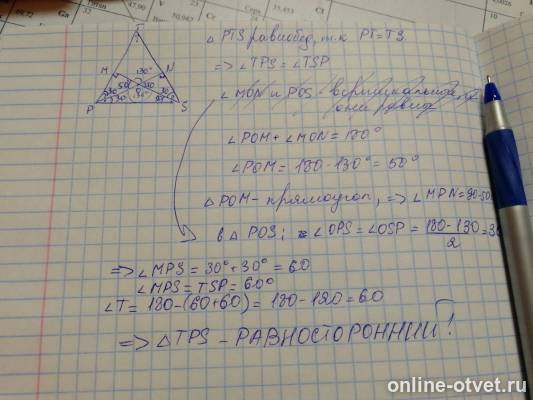 △ PTS равнобед, т.к PT=TS
=> ∠TPS = ∠TSP
∠MON и POS - вертикальные, =>
они равны
∠POM + ∠MON = 180°
∠POM = 180-130° = 50°
△ POM - прямоугол, => ∠MPN = 90-50
в △ POS: ∠OPS = ∠OSP = (180-130)/2 = 30
=> ∠MPS = 30° + 30° = 60
∠MPS = TSP = 60°
∠T = 180-(60+60) = 180-120 = 60
=> △TPS - РАВНОСТОРОННИЙ!
T
M
130°
N
P
S
online-otvet.ru